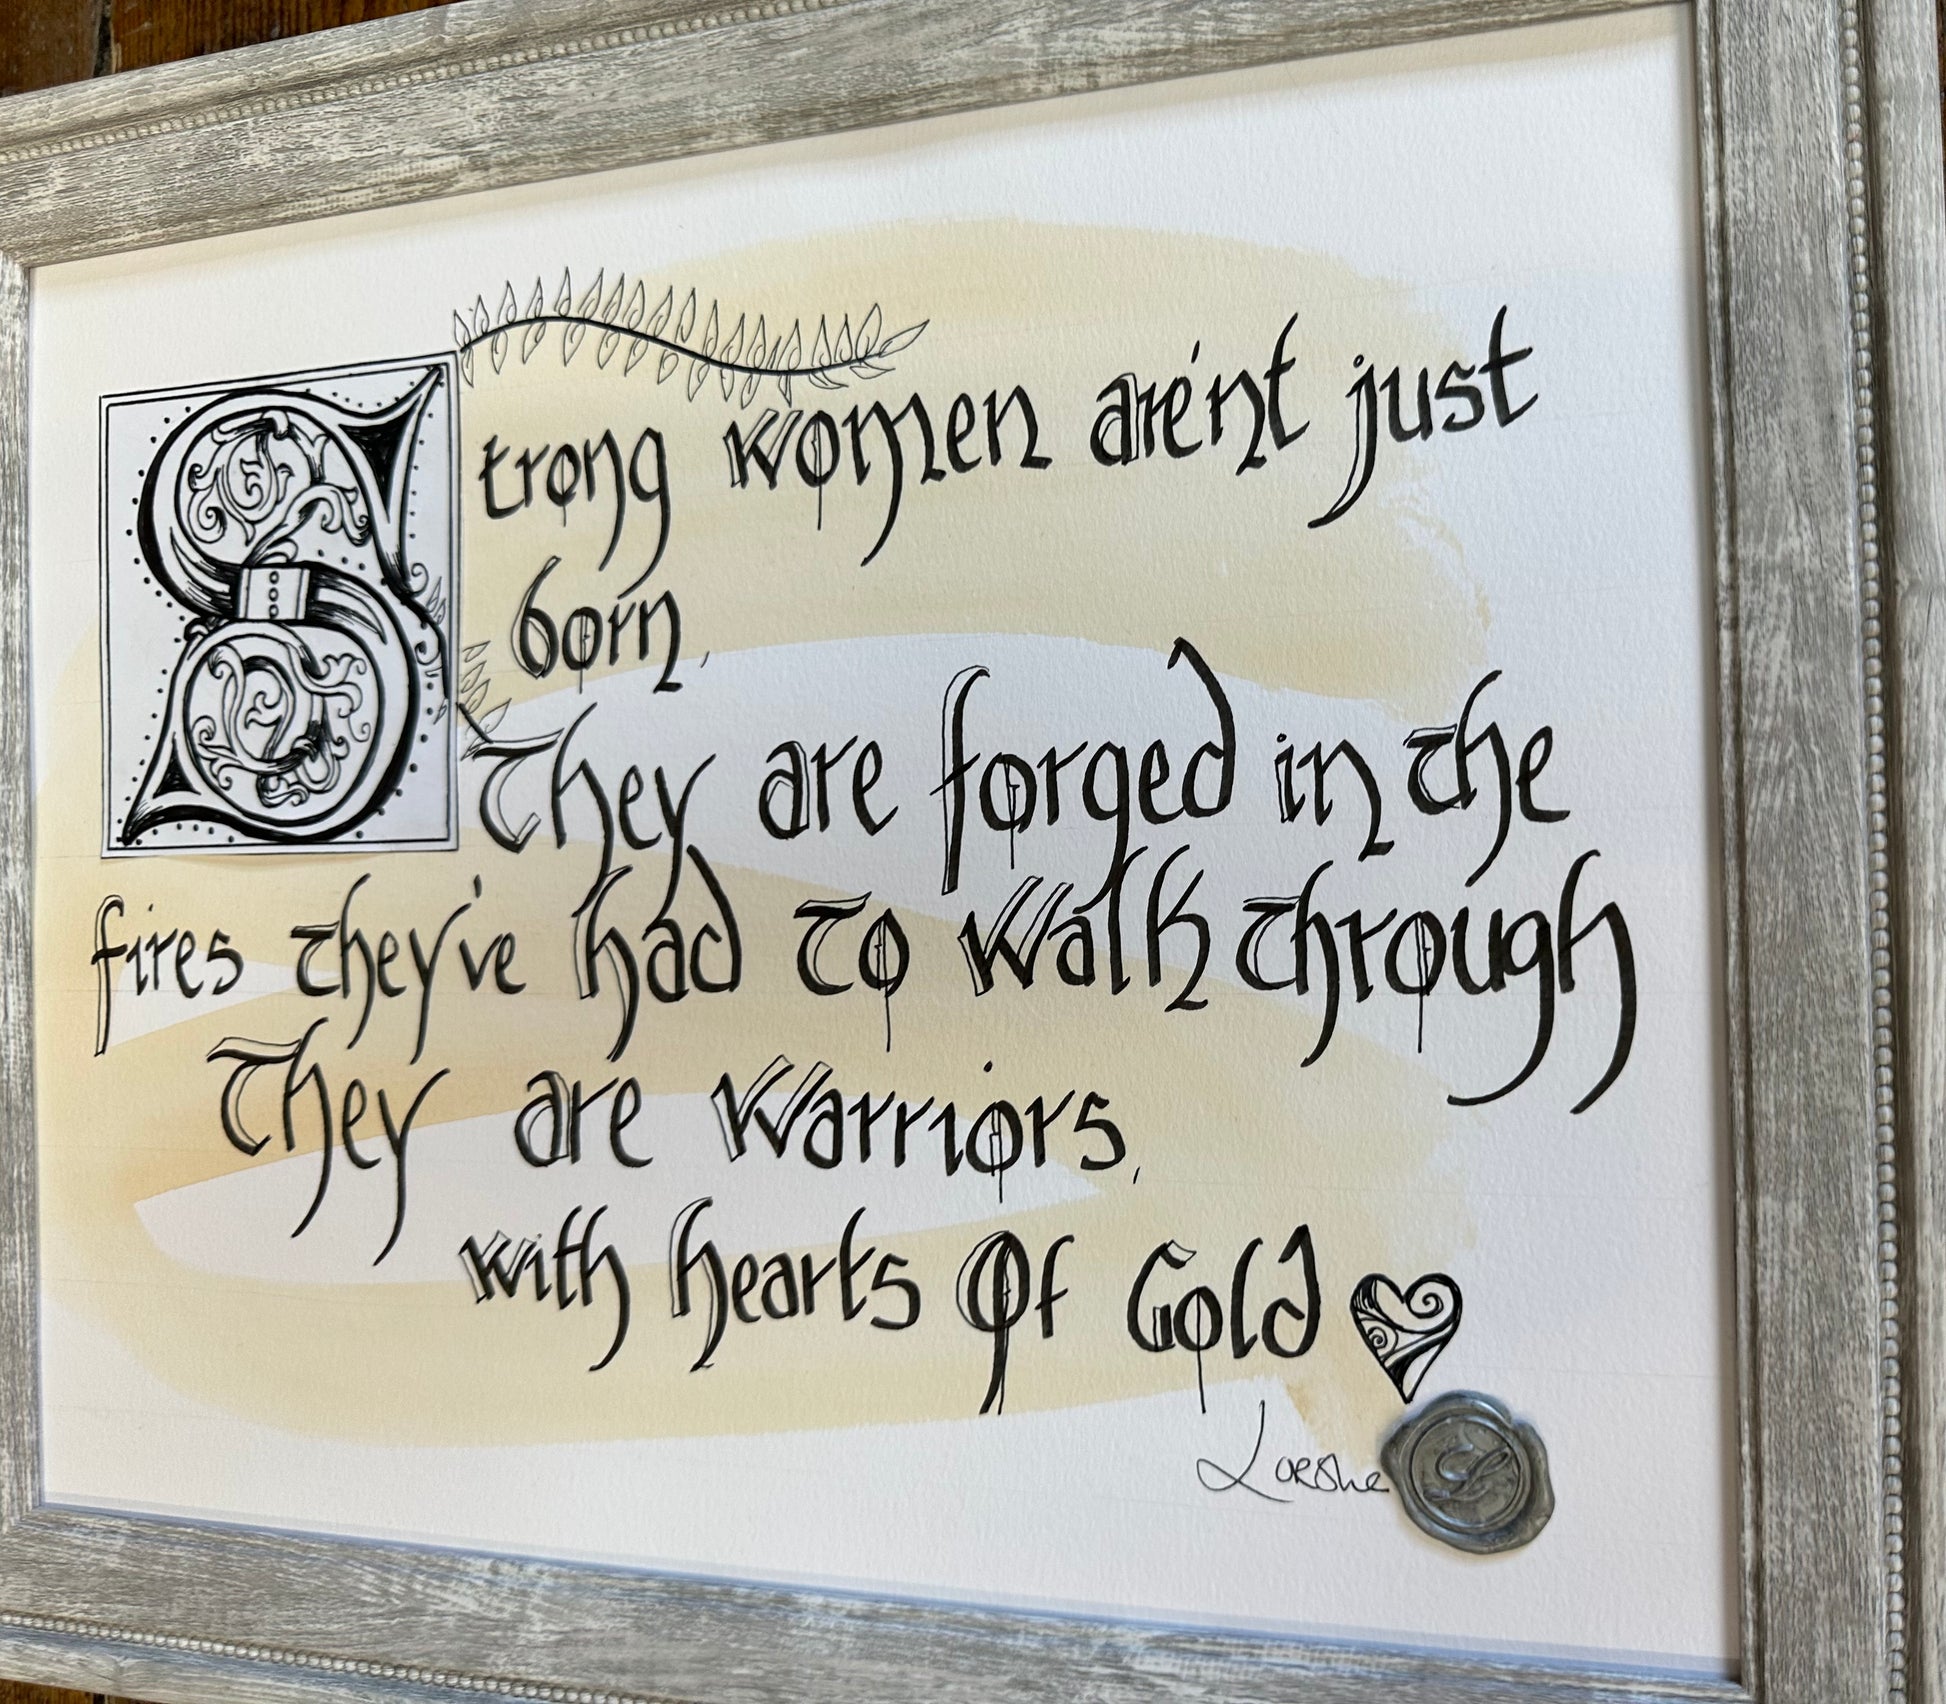 Strong women are'nt just
born,
They are forged in the
fires they've had to walk through
They are Warriors,
with hearts Of Gold